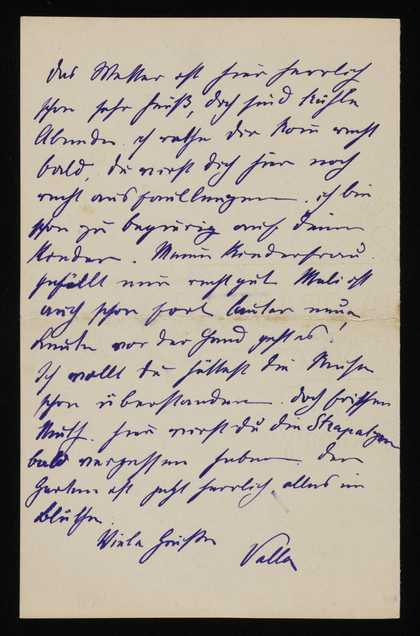 das Wetter ist hier herrlich
schon sehr heiß, doch sind kühle
Abende. ich rathe dir kom recht
bald, du wirst dich hier noch
recht aus
schon zu begierig auf deine
Kinder. Meine Kinderfrau
gefällt mir recht gut Mali ist
auch schon fort lauter neue
Leute vor der Hand geht es.
Ich wollt du hättest die Reise
schon überstanden. doch frischen
Muth. hier wirst du die Strapatzen
bald vergessen haben. der
Garten ist jetzt herrlich alles in
Blüthe.
Viele Grüße